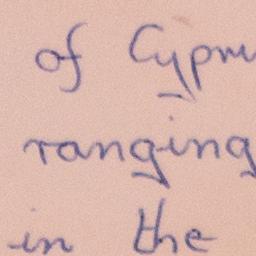 of Cypru
ranging
in the